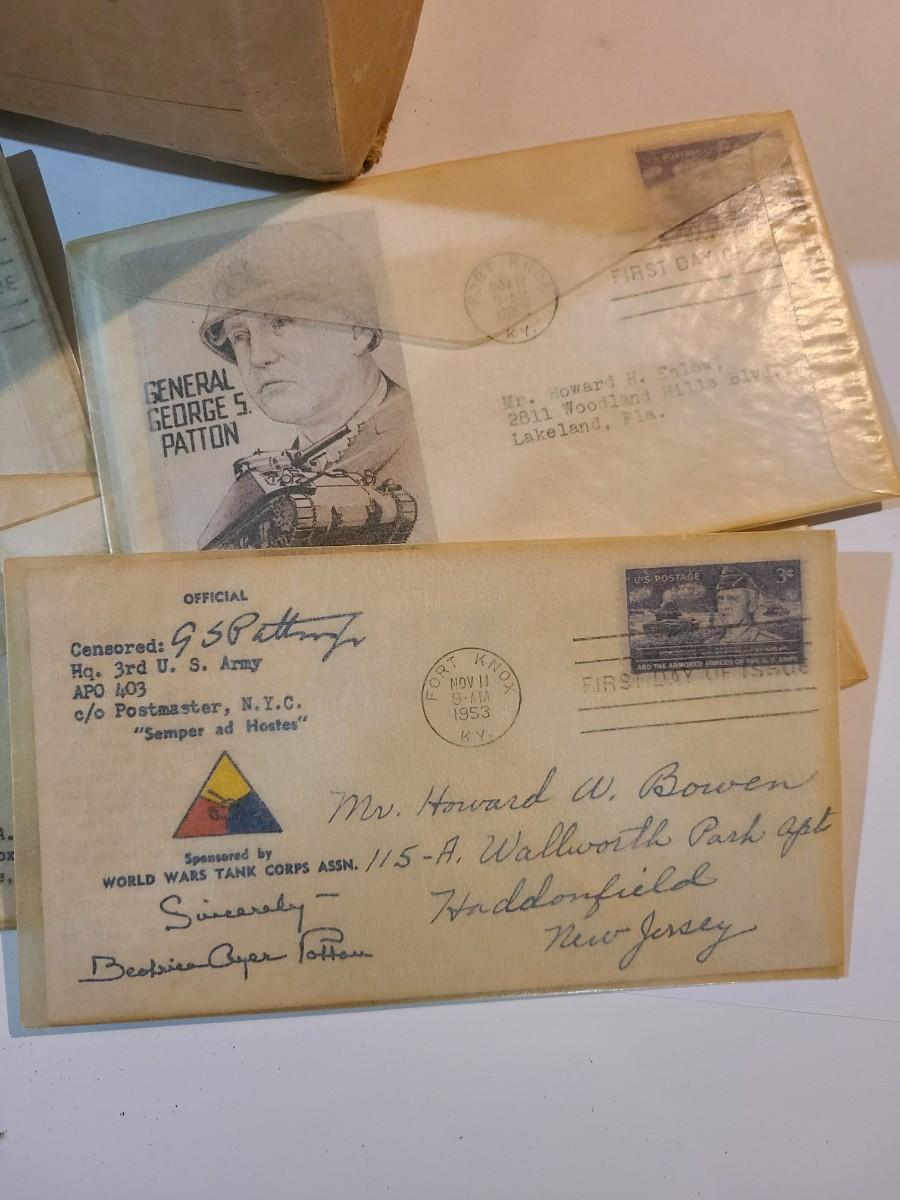 U.S. POSTAGE
FIRST DAY OF
FORT KNOX
NOV 11
9-AM
KY.
GENERAL
GEORGE S.
PATTON
Mr. Howard H. Enlow,
2811 Woodland Hills Blvd.
Lakeland, Fla.
OFFICIAL
Censored: G S Patton Jr
Hq. 3rd U. S. Army
APO 403
c/o Postmaster, N.Y.C.
"Semper ad Hostes"
U.S. POSTAGE 3¢
AND THE ARMORED FORCES OF THE U.S. ARMY
FORT KNOX
NOV 11
9-AM
1953
KY.
FIRST DAY OF ISSUE
Sponsored by
WORLD WARS TANK CORPS ASSN.
Sincerely—
Beatrice Ayer Patton
Mr. Howard W. Bowen
115-A. Wallworth Park apt
Haddonfield
New Jersey